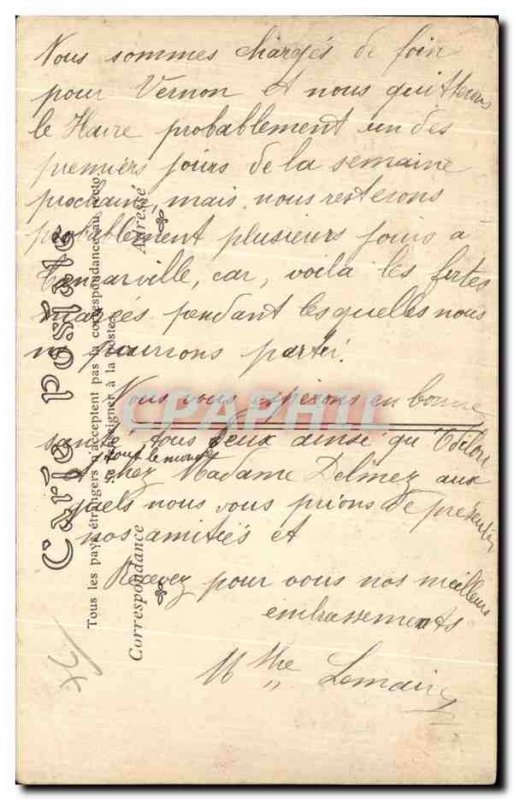 Nous sommes chargés de foin
pour Vernon et nous quitterons
le Havre probablement un des
premiers jours de la semaine
prochaine, mais nous resterons
probablement plusieurs jours a
Tancarville, car, voila les fortes
marées pendant lesquelles nous
ne pourrons partir.
Nous vous espérons en bonne
santé tous deux ainsi qu'Odilon
tout le monde
chez Madame Delmez aux
quels nous vous prions de présenter
nos amitiés et
Recevez pour vous nos meilleurs
embrassements
Lemaire
Carte postale
Tous les pays étrangers n'acceptent pas la correspondance au recto
(Se renseigner à la poste)
Correspondance
Adresse
CPAPHIL